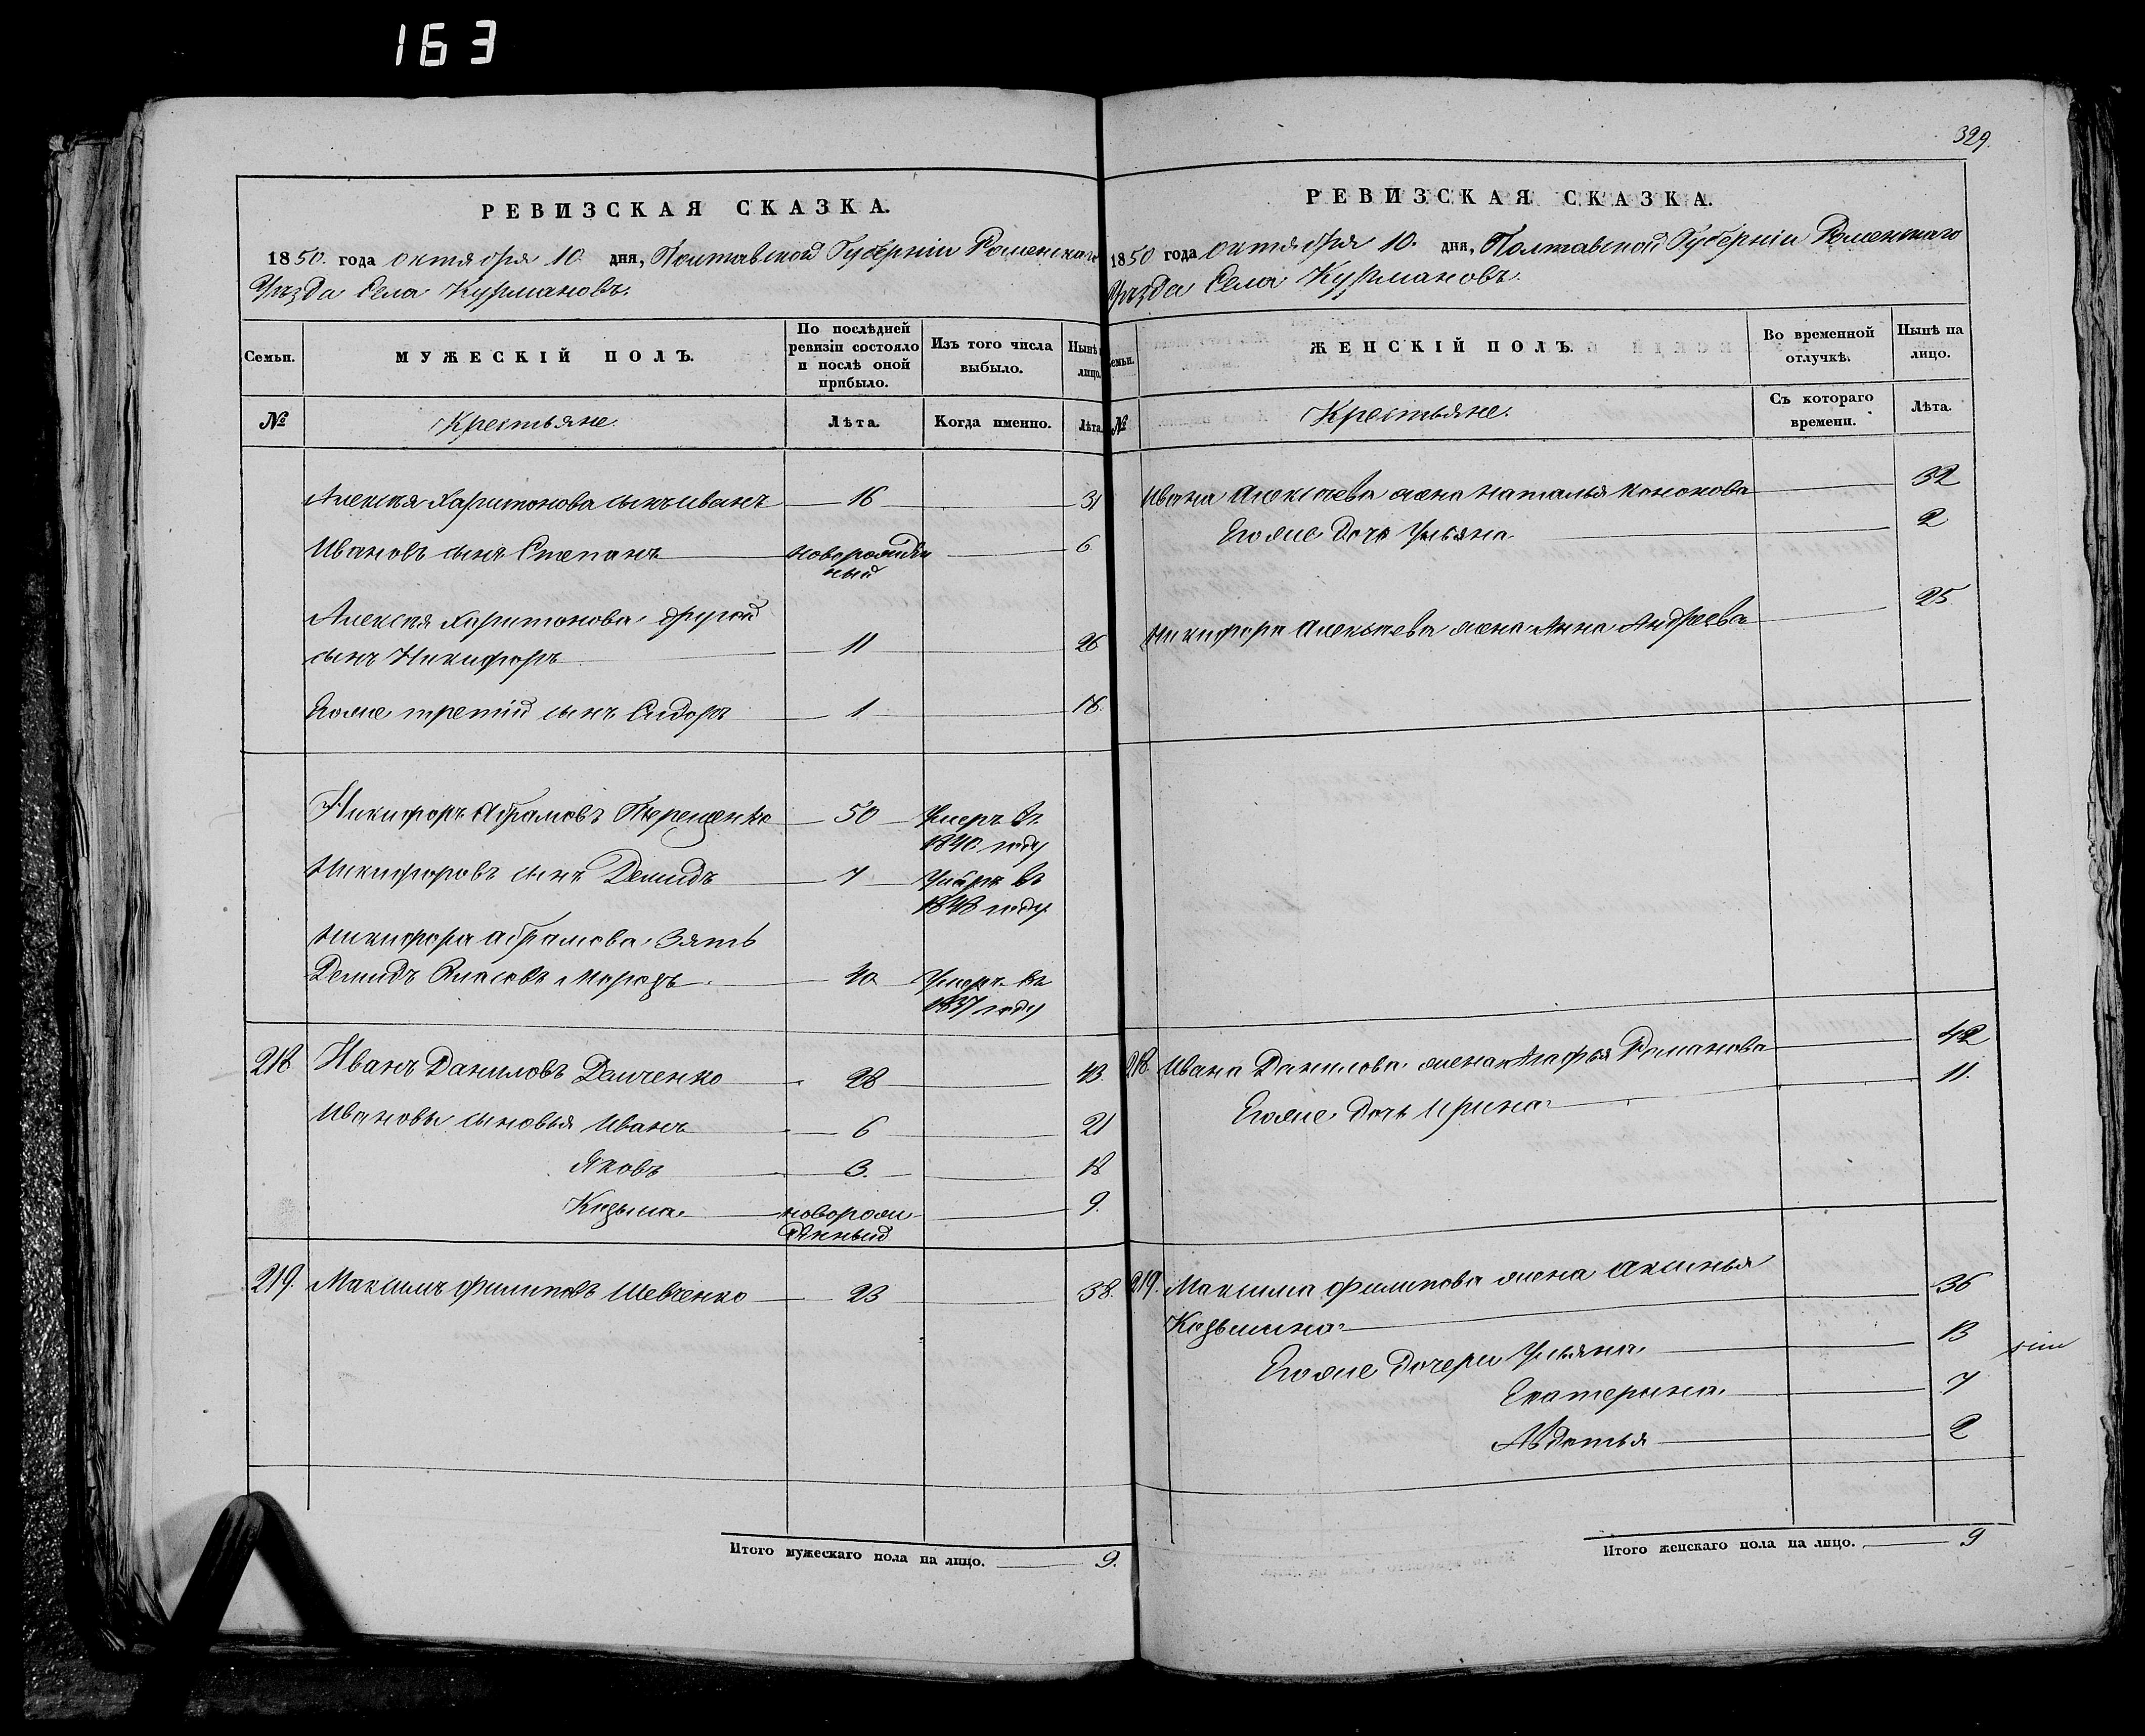 163
329.
РЕВИЗСКАЯ СКАЗКА.
1850. года октября 10 дня, Полтавской Губерніи Роменскаго
Уѣзда Села Курмановъ.
Семьи.
МУЖЕСКІЙ ПОЛЪ.
По послѣдней ревизіи состояло и послѣ оной прибыло.
Изъ того числа выбыло.
Нынѣ лицо.
№
Крестьяне.
Лѣта.
Когда именно.
Лѣта.
Алексѣя Харитонова сынъ Иванъ 16 31
Ивановъ сынъ Степанъ новорожден
ный 6
Алексѣя Харитонова другой
сынъ Никифоръ 11 26
Егоже третій сынъ Сидоръ 1 16.
Никифоръ Абрамовъ Терещенко 50 Умеръ въ
1840 году
Никифоровъ сынъ Демидъ 7 Умеръ въ
1848 году.
Никифора Абрамова зять
Демидъ Власовъ Морозъ 40 Умеръ въ
1837 году
218 Иванъ Даниловъ Демченко 28 43.
Ивановы сыновья Иванъ 6 21
Яковъ 3. 18
Козьма новорож
денный 9.
219. Максимъ Филиповъ Шевченко 23 38.
Итого мужескаго пола на лицо. 9.
РЕВИЗСКАЯ СКАЗКА.
1850 года октября 10. дня, Полтавской Губерніи Роменскаго
Уѣзда Села Курмановъ.
емьи.
ЖЕНСКІЙ ПОЛЪ.
Во временной отлучкѣ.
Нынѣ на лицо.
№
Крестьяне.
Съ котораго времени.
Лѣта.
Ивана Алексѣева жена Наталья Кононова 32
Егоже дочь Ульяна 2
Никифора Алексѣева жена Анна Андреева 25.
218. Ивана Данилова жена Агафья Романова 42
Егоже дочь Ирина 11.
219. Максима Филипова жена Аксинья
Козьмина 36
Егоже дочери Ульяна 13
Екатерина 7
Авдотья 2
Итого женскаго пола на лицо. 9